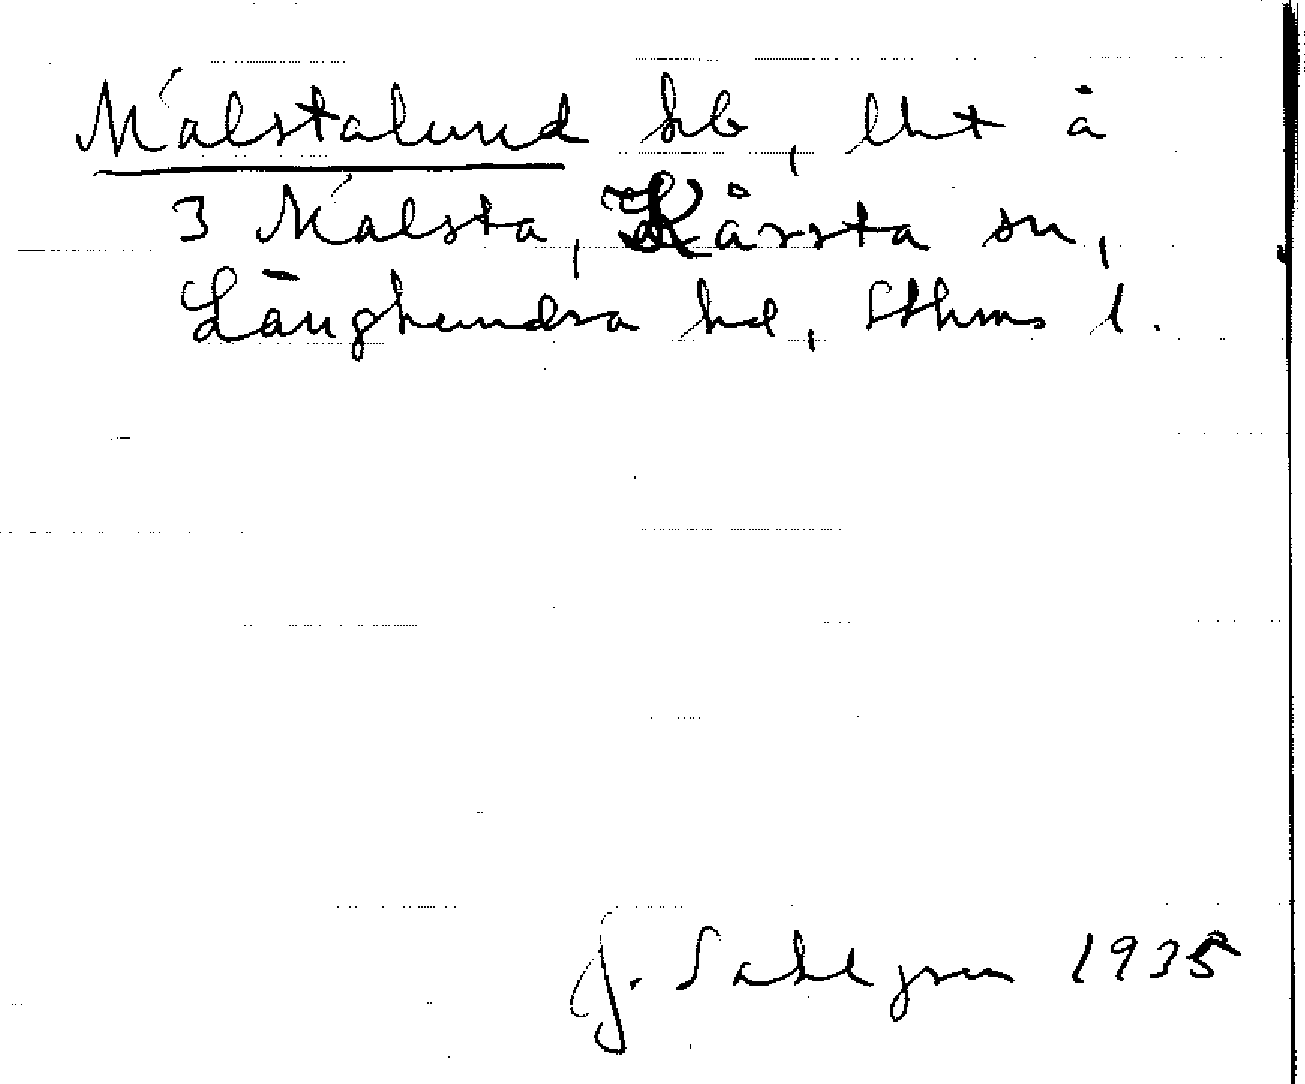 Malstalund hb, lht å
3 Malsta, Kårsta sn,
Långhundra hd, Sthms l.
J. Sahlgren 1935